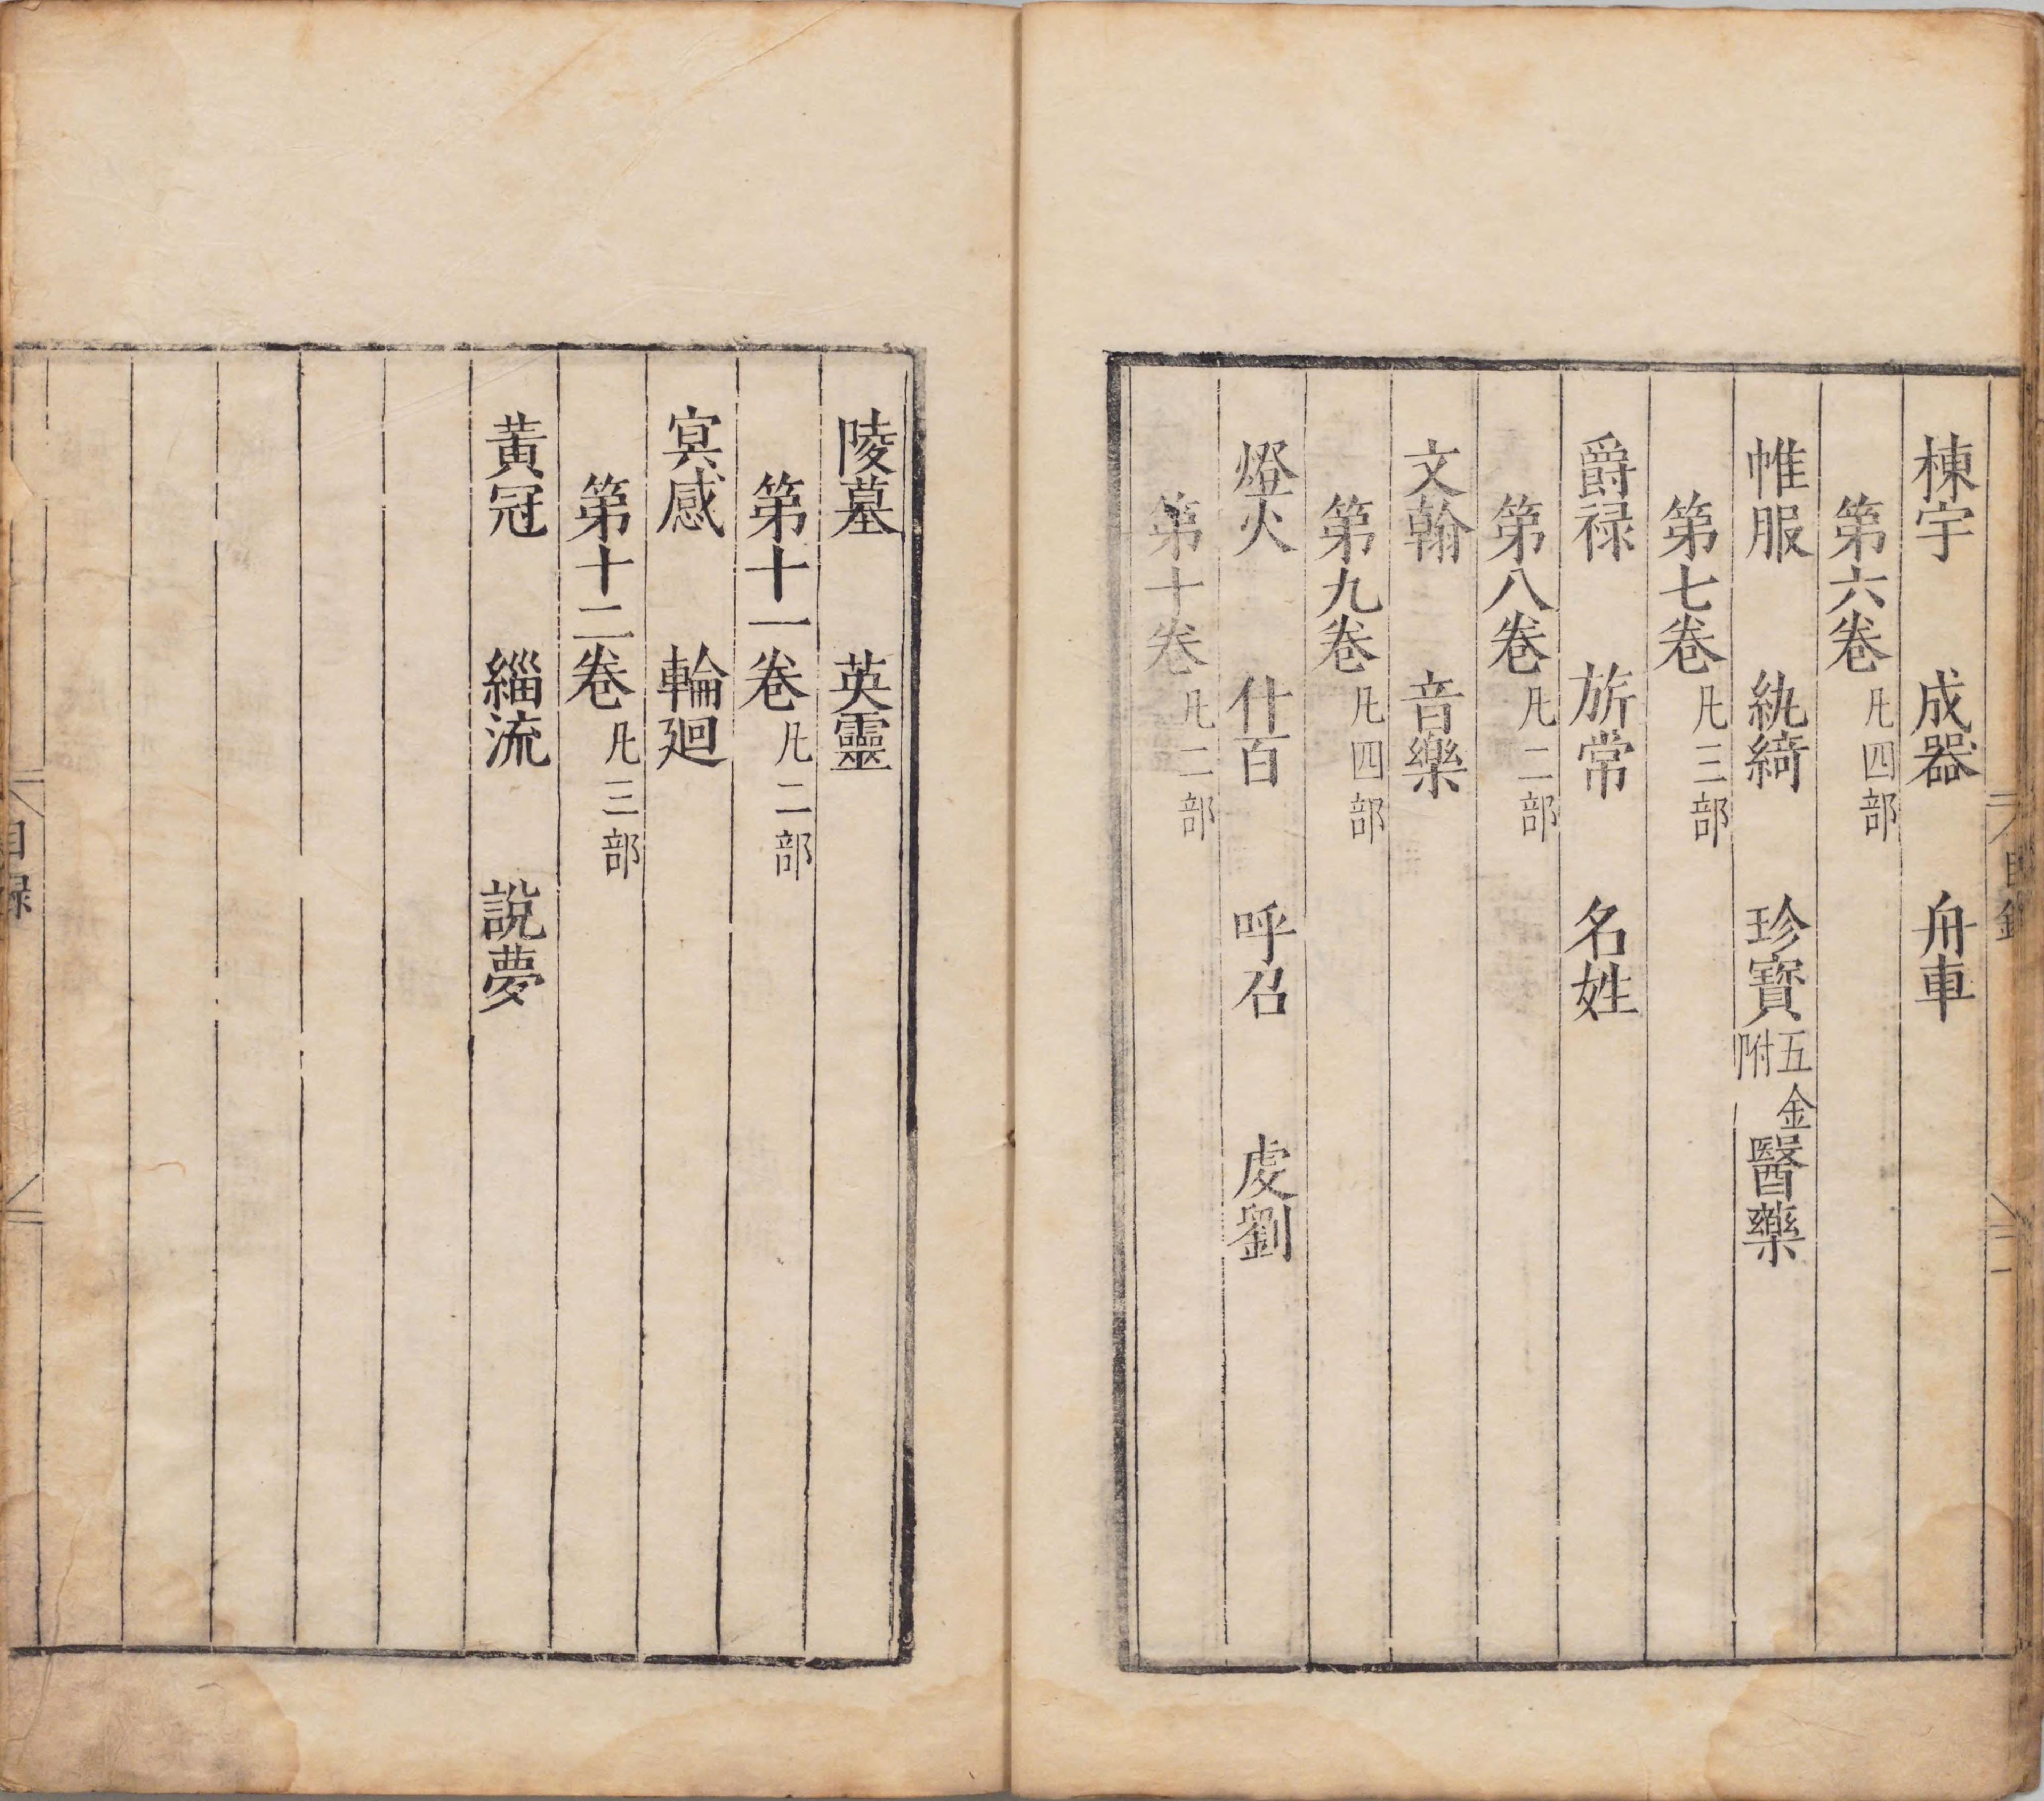 棟宇 成器 舟車
第六卷 凡四部
帷服 紈綺 珍寶 五金附 醫藥
第七卷 凡三部
爵祿 旂常 名姓
第八卷 凡二部
文翰 音樂
第九卷 凡四部
燈火 什百 呼召 虔劉
第十卷 凡二部
陵墓 英靈
第十一卷 凡二部
㝠感 輪廻
第十二卷 凡三部
黃冠 緇流 說夢
目録